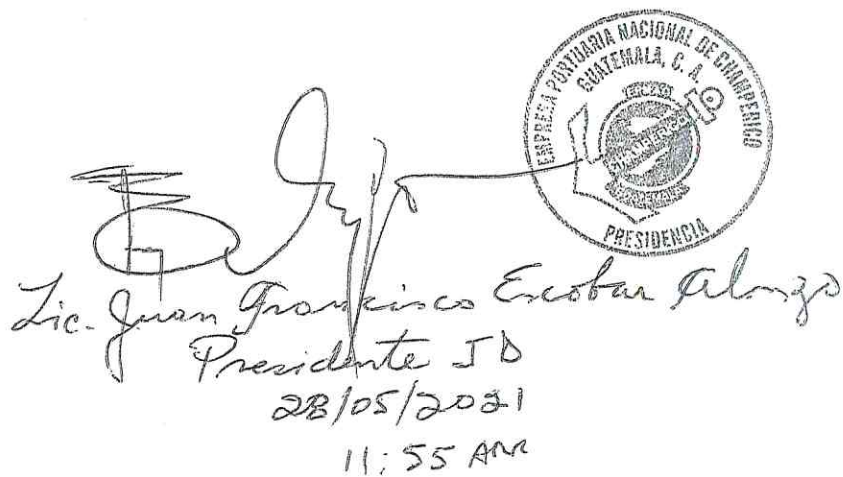 EMPRESA PORTUARIA NACIONAL DE CHAMPERICO
GUATEMALA, C. A.
CHAMPERICO
PRESIDENCIA
Lic. Juan Francisco Escobar Alonzo
Presidente JD
28/05/2021
11:55 AM